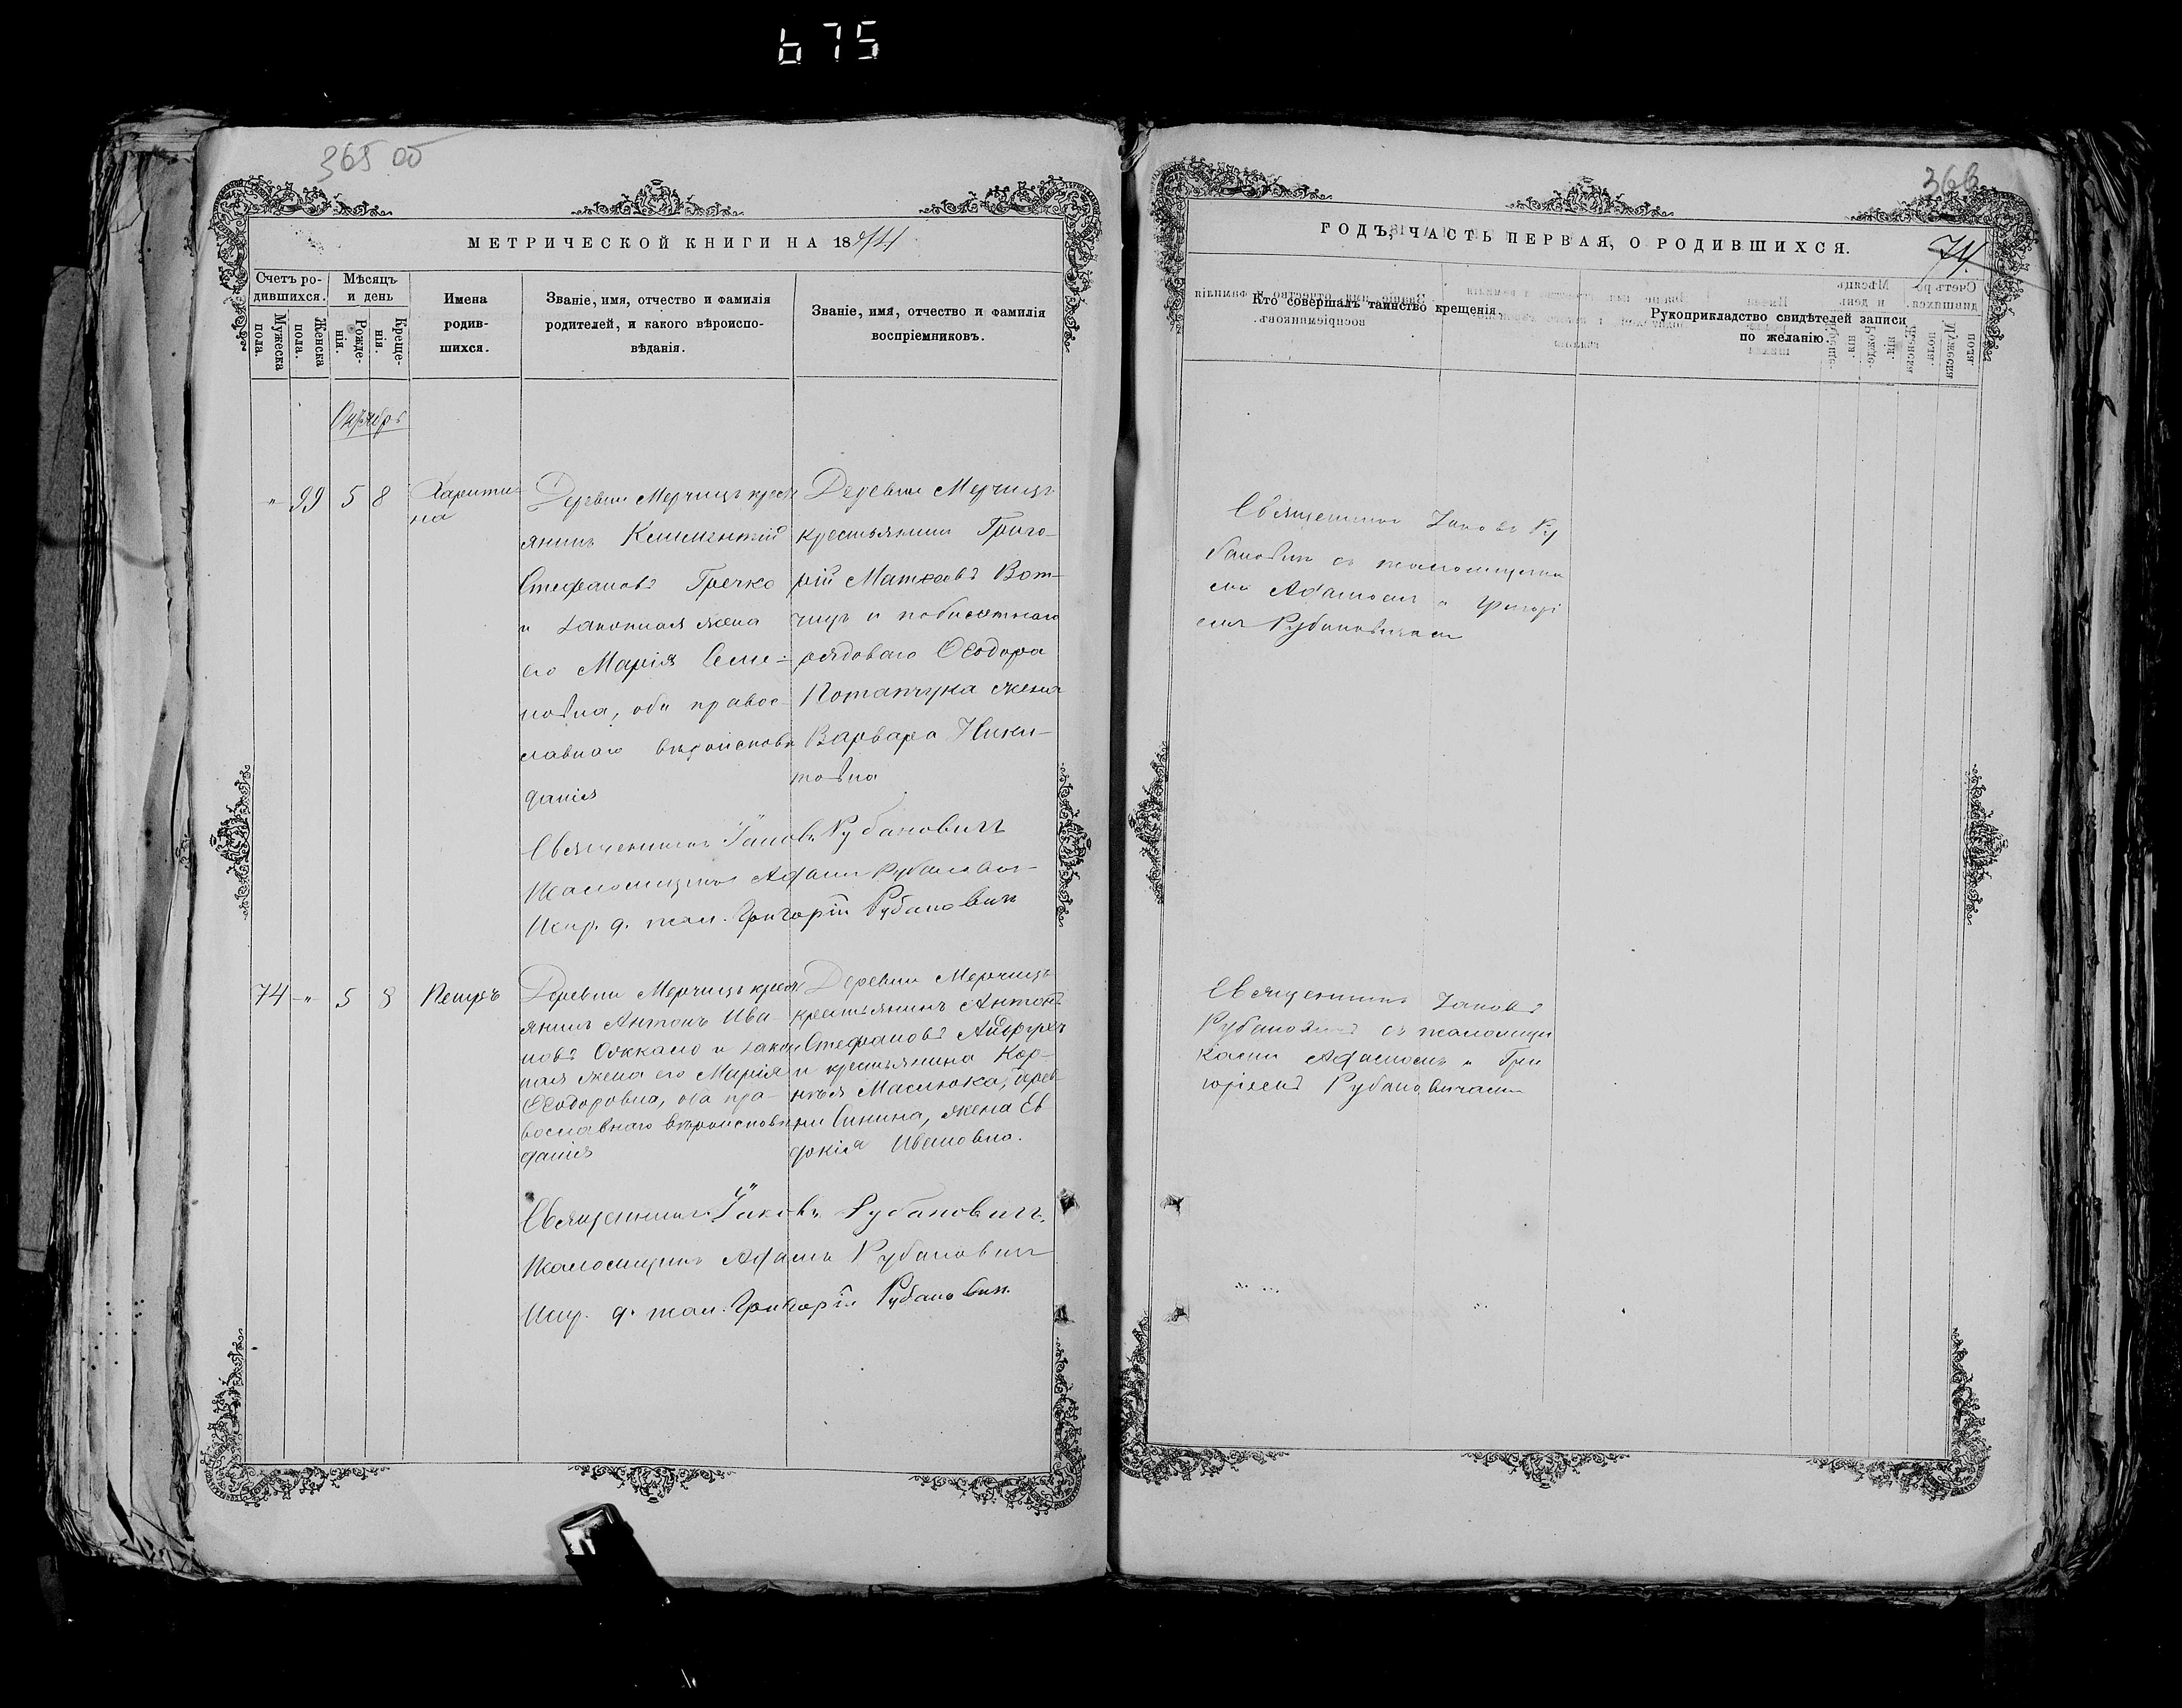 675
365 об
366
МЕТРИЧЕСКОЙ КНИГИ НА 1874
Счетъ ро-
дившихся.
Мужеска
пола.
Женска
пола.
Мѣсяцъ
и день
Рожде-
нія.
Креще-
нія.
Имена
родив-
шихся.
Званіе, имя, отчество и фамилія
родителей, и какого вѣроиспо-
вѣданія.
Званіе, имя, отчество и фамилія
воспріемниковъ.
Октябрь
" 99 5 8
Харити-
на
Деревни Мерчицъ кресть
янинъ Климентій
Стефановъ Гречко
и законная жена
его Марія Семе-
новна, оба правос-
лавнаго вѣроисповѣ
данія
Деревни Мерчицъ
крестьянинъ Григо-
рій Матѳеевъ Вот-
чицъ и
рядоваго Ѳеодора
Потапчука жена
Варвара Ники-
товна
Священникъ Іаковъ Рубановичъ
Псаломщикъ Адамъ Рубанович
Испр. д. псал. Григорій Рубанович
74 -"- 5 8
Петръ
Деревни Мерчицъ крест
янинъ Антонъ Ива
новъ и закон
ная жена его Марія
Ѳеодоровна, оба пра-
вославнаго вѣроисповѣ
данія
Деревни Мерчицъ
крестьянинъ Антонъ
Стефановъ
и крестьянина Кор-
нѣя Маслюка, дерев-
ни Синина, жена Ев
докія Ивановна.
Священникъ Іаковъ Рубановичъ.
Псаломщикъ Адамъ Рубанович
Испр. д. псал. Григорій Рубанович.
ГОДЪ, ЧАСТЬ ПЕРВАЯ, О РОДИВШИХСЯ.
74.
Кто совершалъ таинство крещенія.
Рукоприкладство свидѣтелей записи
по желанію.
Священникъ Іаковъ Ру
бановичъ съ псаломщика
ми Адамомъ и Григорі
емъ Рубановичами
Священникъ Іаковъ
Рубановичъ съ псаломщи
ками Адамомъ и Гри
горіемъ Рубановичами